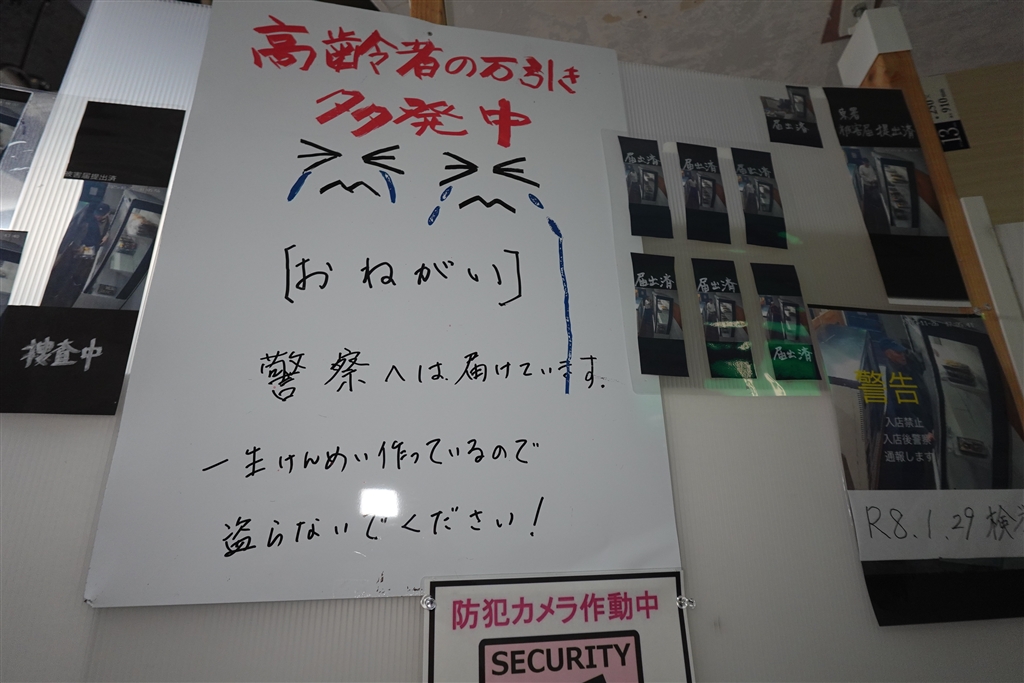 高齢者の万引き
多発中
[おねがい]
警察へは届けています.
一生けんめい作っているので
盗らないでください!
被害届提出済
捜査中
届出済
届出済
届出済
届出済
届出済
届出済
届出済
被害届提出済
警告
入店禁止
入店後警察
通報します
R8.1.29 検
防犯カメラ作動中
SECURITY